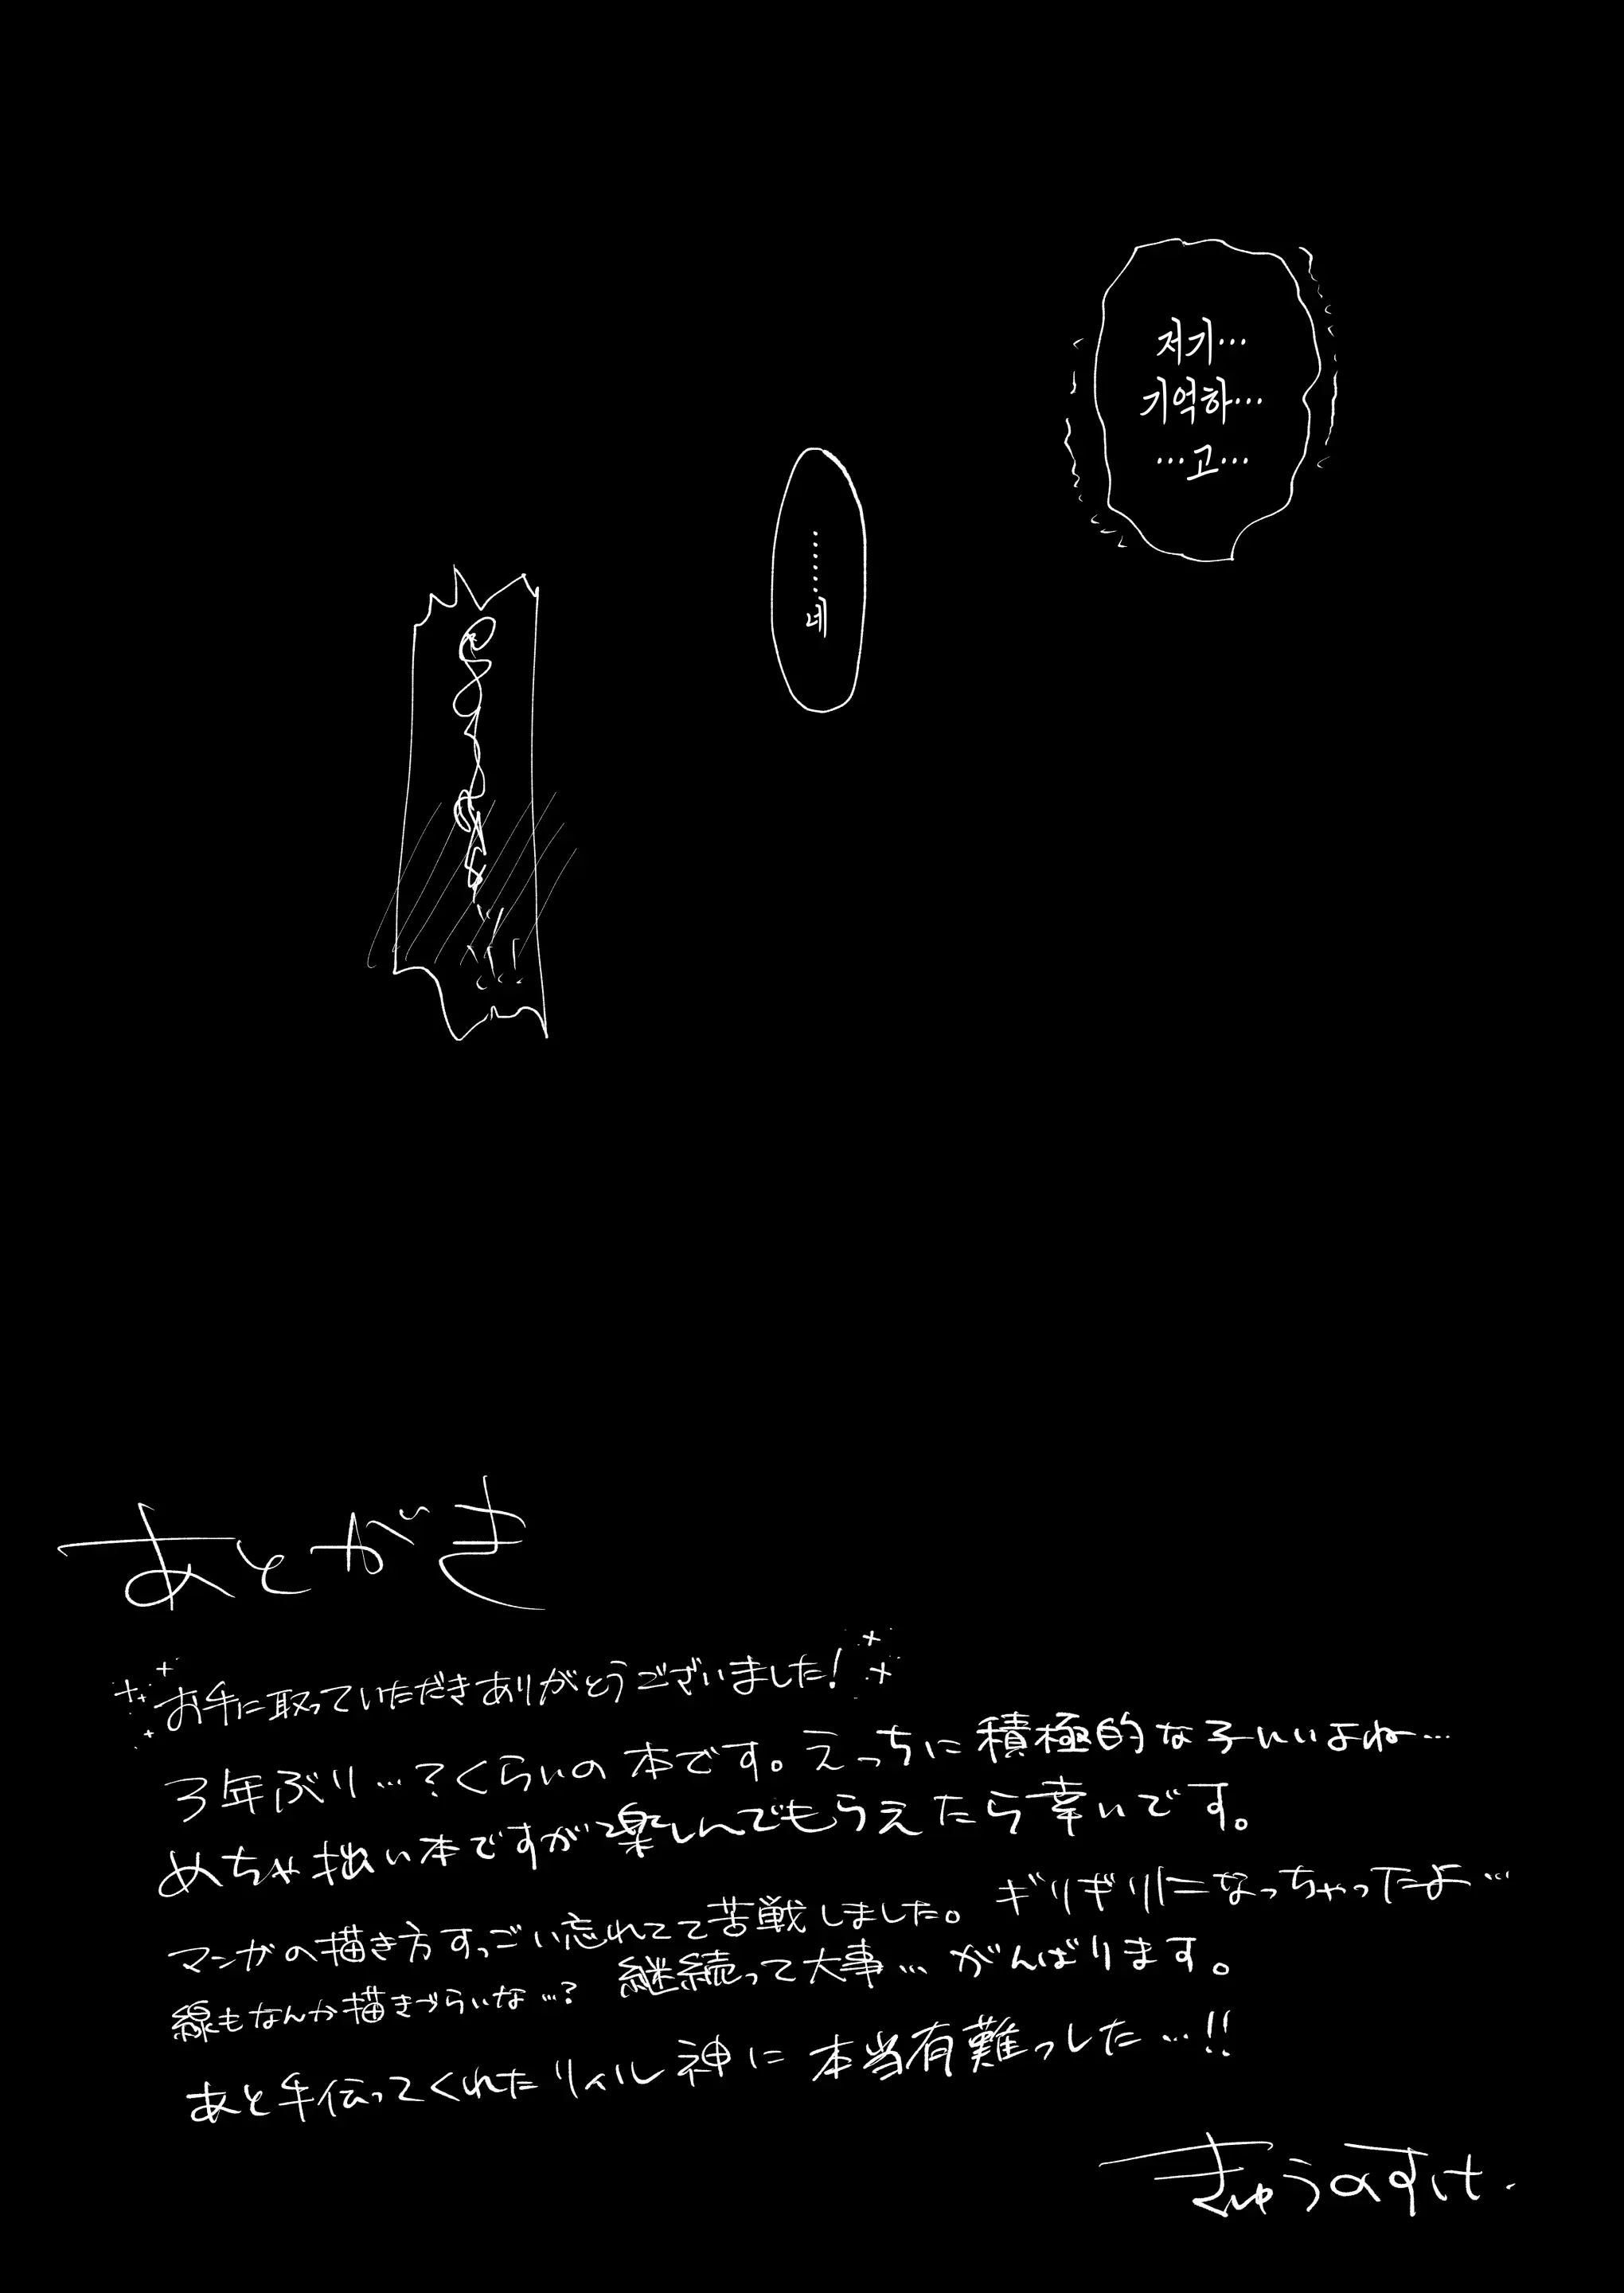 저기…
기억하…
…고…
……네
あとがき
お手に取っていただきありがとうございました!
3年ぶり…?くらいの本です。えっちに積極的な子いいよね…
めちゃ拙い本ですが楽しんでもらえたら幸いです。
マンガの描き方すっごい忘れてて苦戦しました。ギリギリになっちゃったよ…
線もなんか描きづらいな…?継続って大事…がんばります。
あと手伝ってくれたリィル神に本当有難っした…!!
きゅうのすけ.